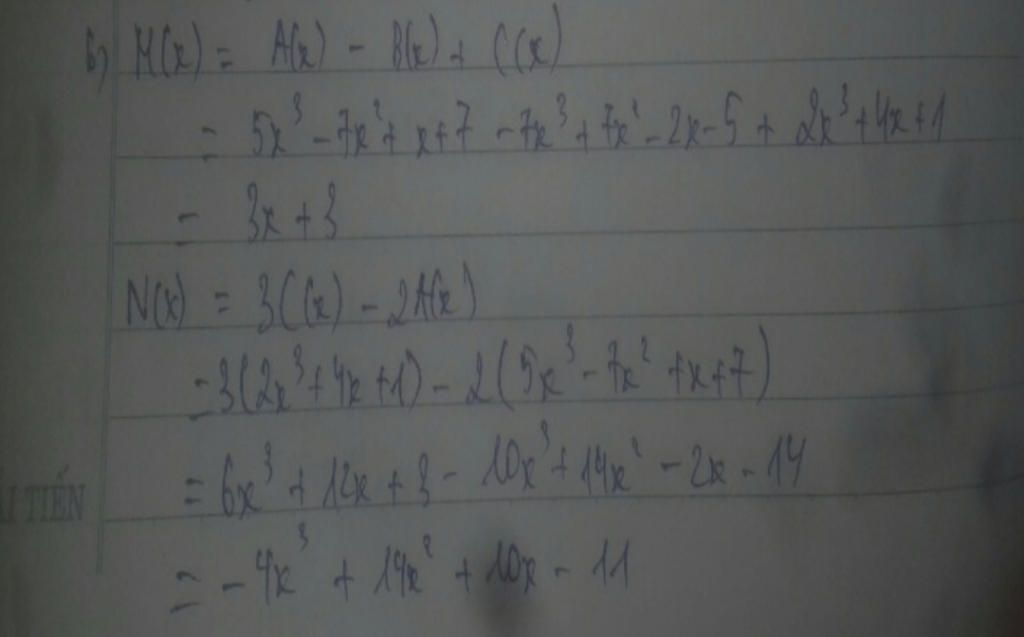 b) M(x) = A(x) - B(x) + C(x)
= 5x³ - 7x² + x + 7 - 7x³ + 7x² - 2x - 5 + 2x³ + 4x + 1
= 3x + 3
N(x) = 3C(x) - 2A(x)
= 3(2x³ + 4x + 1) - 2(5x³ - 7x² + x + 7)
= 6x³ + 12x + 3 - 10x³ + 14x² - 2x - 14
TIẾN
= -4x³ + 14x² + 10x - 11